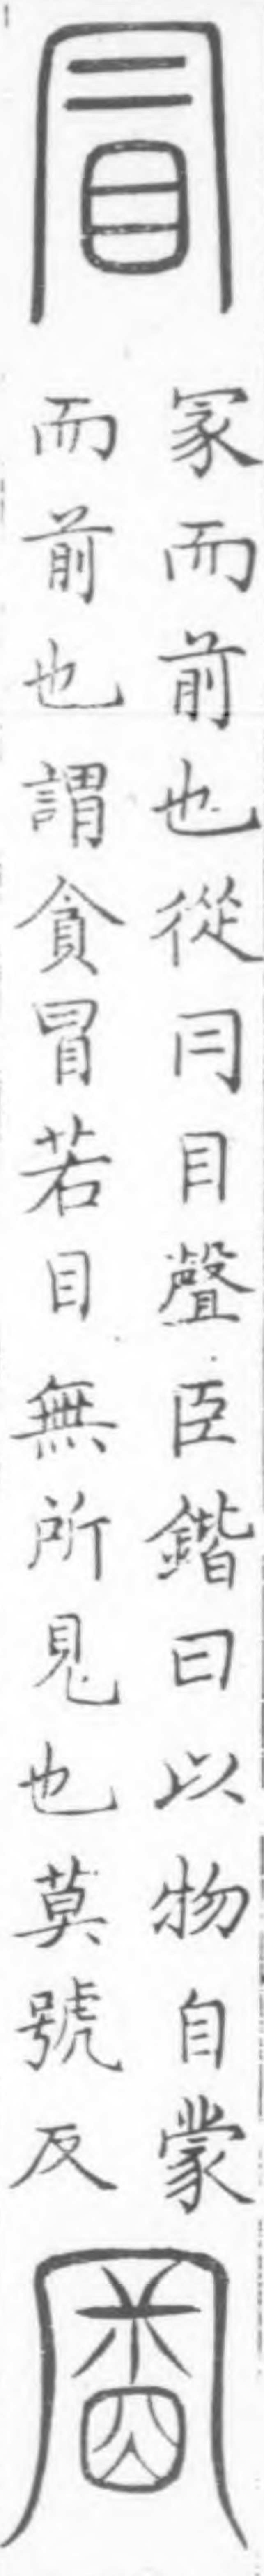 冒
冡而前也從冃目聲臣鍇曰以物自蒙
而前也謂貪冒若目無所見也莫號反